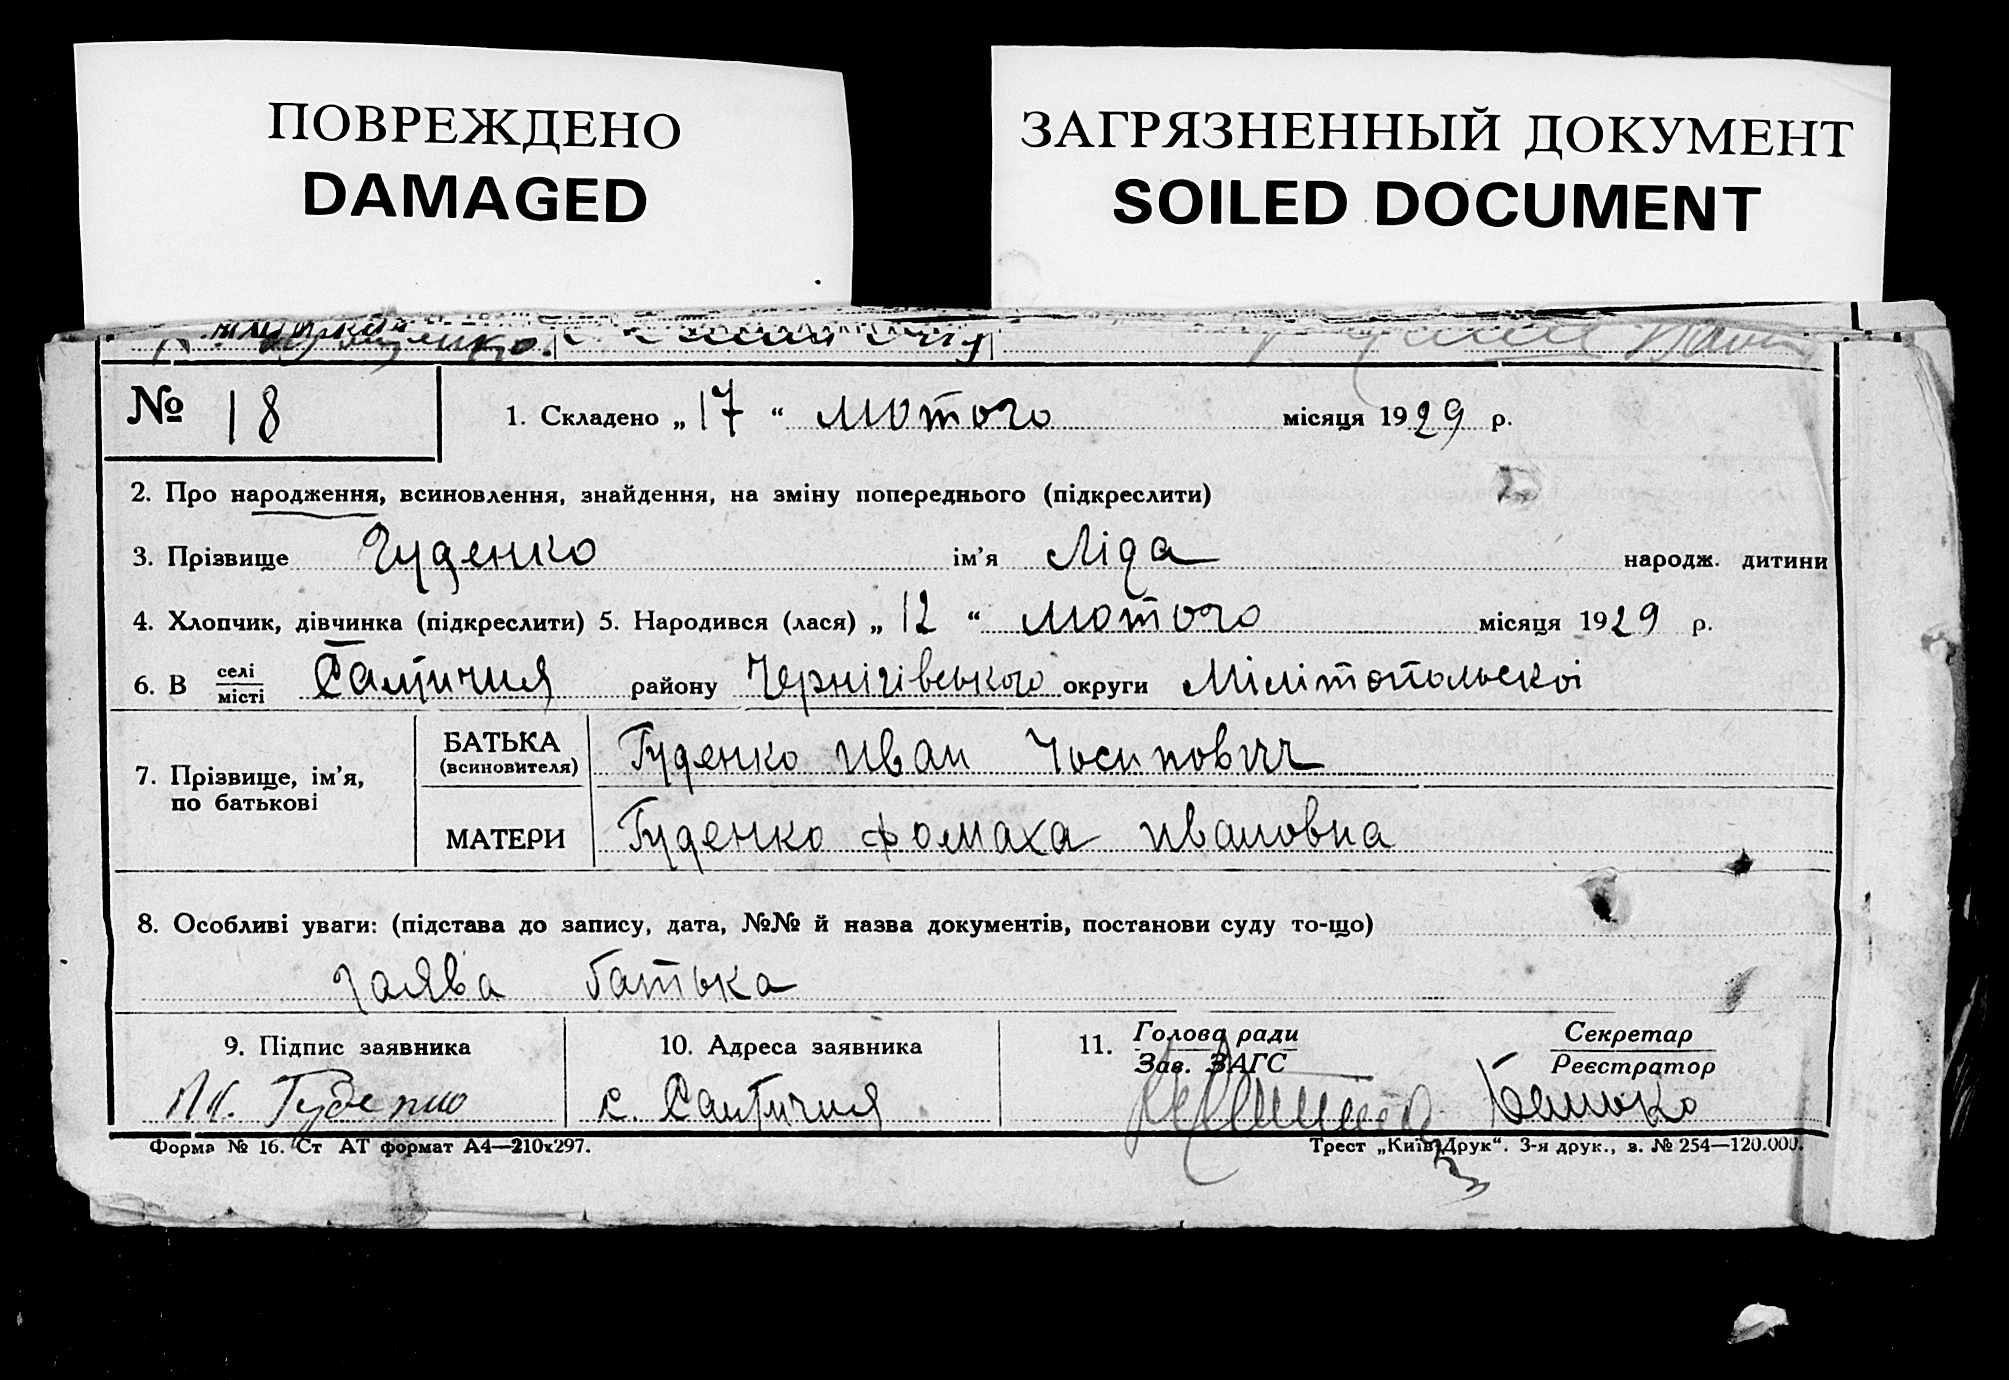 ПОВРЕЖДЕНО
DAMAGED
ЗАГРЯЗНЕННЫЙ ДОКУМЕНТ
SOILED DOCUMENT
№ 18
1. Складено „ 17 “ лютого місяця 1929 р.
2. Про народження, всиновлення, знайдення, на зміну попереднього (підкреслити)
3. Прізвище Гуденко ім’я Ліда народж. дитини
4. Хлопчик, дівчинка (підкреслити) 5. Народився (лася) „ 12 “ лютого місяця 1929 р.
6. В селі/місті Салтичия району Чернігівського округи Мілітопольскої
7. Прізвище, ім’я, по батькові
БАТЬКА (всиновителя) Гуденко Иван Йосипович
МАТЕРИ Гуденко Фомаха Ивановна
8. Особливі уваги: (підстава до запису, дата, №№ й назва документів, постанови суду то-що)
заява батька
9. Підпис заявника
10. Адреса заявника
11. Голова ради
Зав. ЗАГС
Секретар
Реєстратор
с. Салтичия
Форма № 16. Ст АТ формат А4—210х297.
Трест „Київ-Друк“. 3-я друк., з. № 254—120.000.